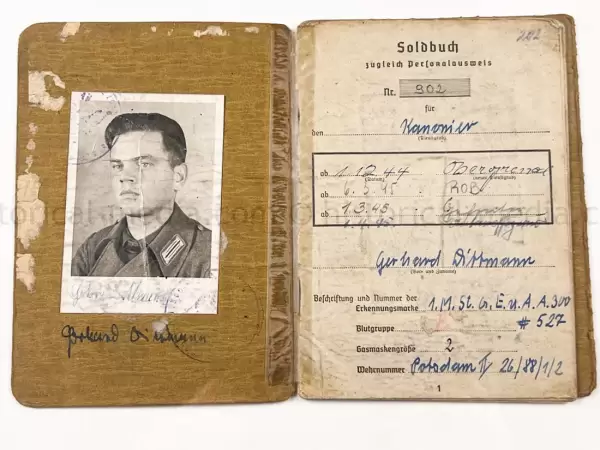 Gerhard Dittmann
202
Soldbuch
zugleich Personalausweis
Nr. 902
für
den Kanonier
(Dienstgrad)
ab 1.12.44
(Datum) (neuer Dienstgrad)
ab 6. 45 ROB
ab 1.3.45
Gerhard Dittmann
(Vor- und Zuname)
Beschriftung und Nummer der
Erkennungsmarke 1. M. St. G. E. u. A. A. 300
# 527
Blutgruppe
Gasmaskengröße 2
Wehrnummer Potsdam II 26/88/1/2
1